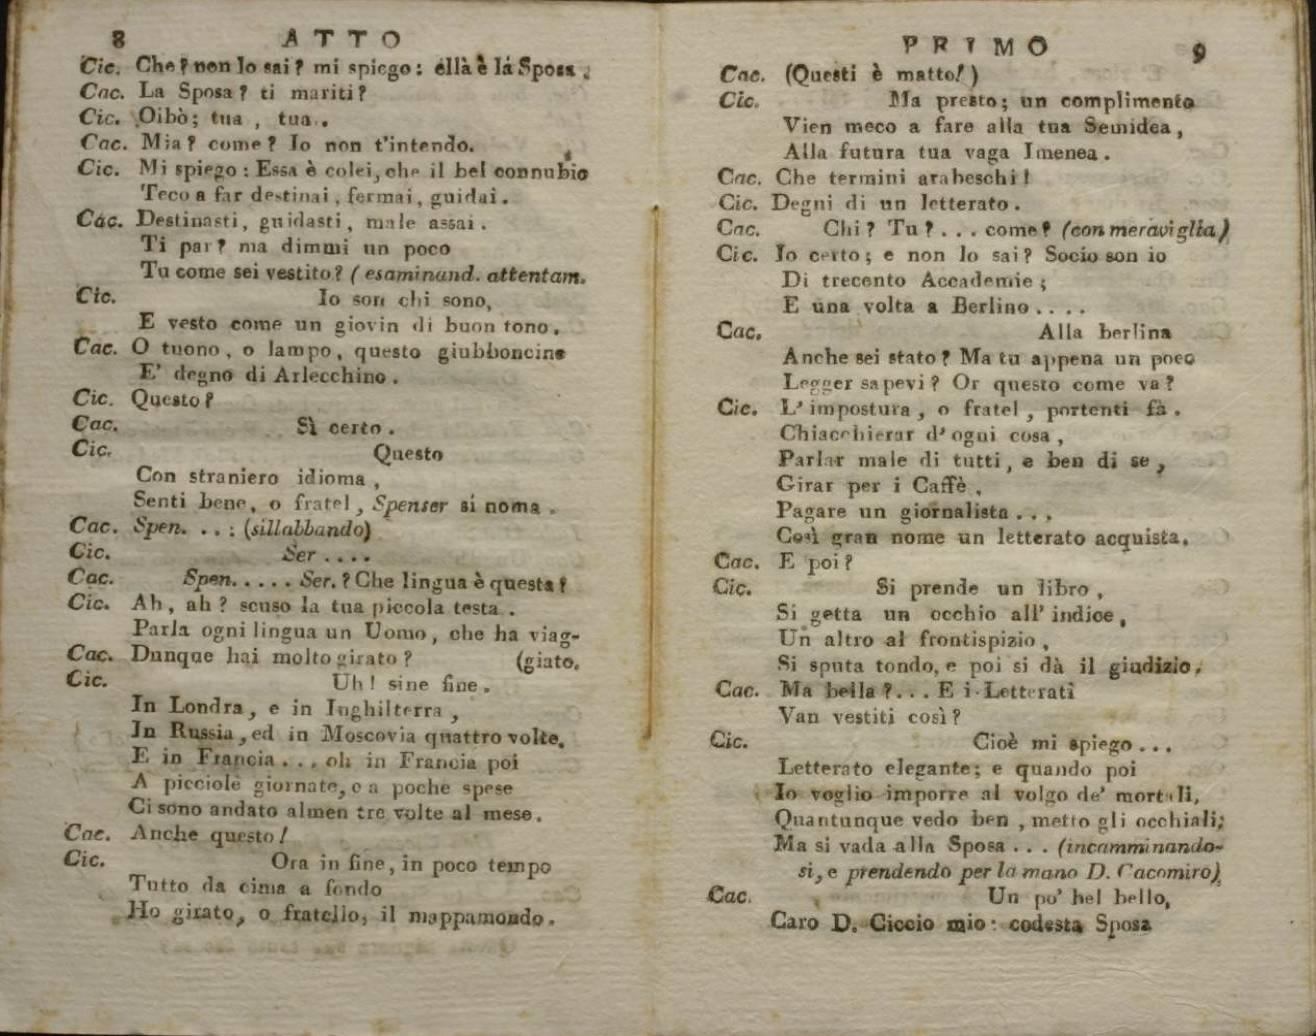 8 ATTO
Cic. Che? non lo sai? mi spiego: ella è la Sposa.
Cac. La Sposa? ti mariti?
Cic. Oibò; tua, tua.
Cac. Mia? come? Io non t'intendo.
Cic. Mi spiego: Essa è colei, che il bel connubio
Teco a far destinai, fermai, guidai.
Cac. Destinasti, guidasti, male assai.
Ti par? ma dimmi un poco
Tu come sei vestito? (esaminand. attentam.
Cic. Io son chi sono,
E vesto come un giovin di buon tono.
Cac. O tuono, o lampo, questo giubboncino
E' degno di Arlecchino.
Cic. Questo?
Cac. Sì certo.
Cic. Questo
Con straniero idioma,
Senti bene, o fratel, Spenser si noma.
Cac. Spen. ..: (sillabbando)
Cic. Ser....
Cac. Spen..... Ser.? Che lingua è questa?
Cic. Ah, ah? scuso la tua piccola testa.
Parla ogni lingua un Uomo, che ha viag-
Cac. Dunque hai molto girato? (giato.
Cic. Uh! sine fine.
In Londra, e in Inghilterra,
In Russia, ed in Moscovia quattro volte.
E in Francia... oh in Francia poi
A picciole giornate, e a poche spese
Ci sono andato almen tre volte al mese.
Cac. Anche questo!
Cic. Ora in fine, in poco tempo
Tutto da cima a fondo
Ho girato, o fratello, il mappamondo.
PRIMO 9
Cac. (Questi è matto!)
Cic. Ma presto; un complimento
Vien meco a fare alla tua Semidea,
Alla futura tua vaga Imenea.
Cac. Che termini arabeschi!
Cic. Degni di un letterato.
Cac. Chi? Tu?... come? (con meraviglia)
Cic. Io certo; e non lo sai? Socio son io
Di trecento Accademie;
E una volta a Berlino....
Cac. Alla berlina
Anche sei stato? Ma tu appena un poco
Legger sapevi? Or questo come va?
Cic. L'impostura, o fratel, portenti fà.
Chiacchierar d'ogni cosa,
Parlar male di tutti, e ben di se,
Girar per i Caffè,
Pagare un giornalista...,
Così gran nome un letterato acquista.
Cac. E poi?
Cic. Si prende un libro,
Si getta un occhio all'indice,
Un altro al frontispizio,
Si sputa tondo, e poi si dà il giudizio.
Cac. Ma bella?... E i Letterati
Van vestiti così?
Cic. Cioè mi spiego...
Letterato elegante; e quando poi
Io voglio imporre al volgo de' mortali,
Quantunque vedo ben, metto gli occhiali;
Ma si vada alla Sposa... (incamminando-
si, e prendendo per la mano D. Cacomiro)
Cac. Un po' bel bello,
Caro D. Ciccio mio: codesta Sposa